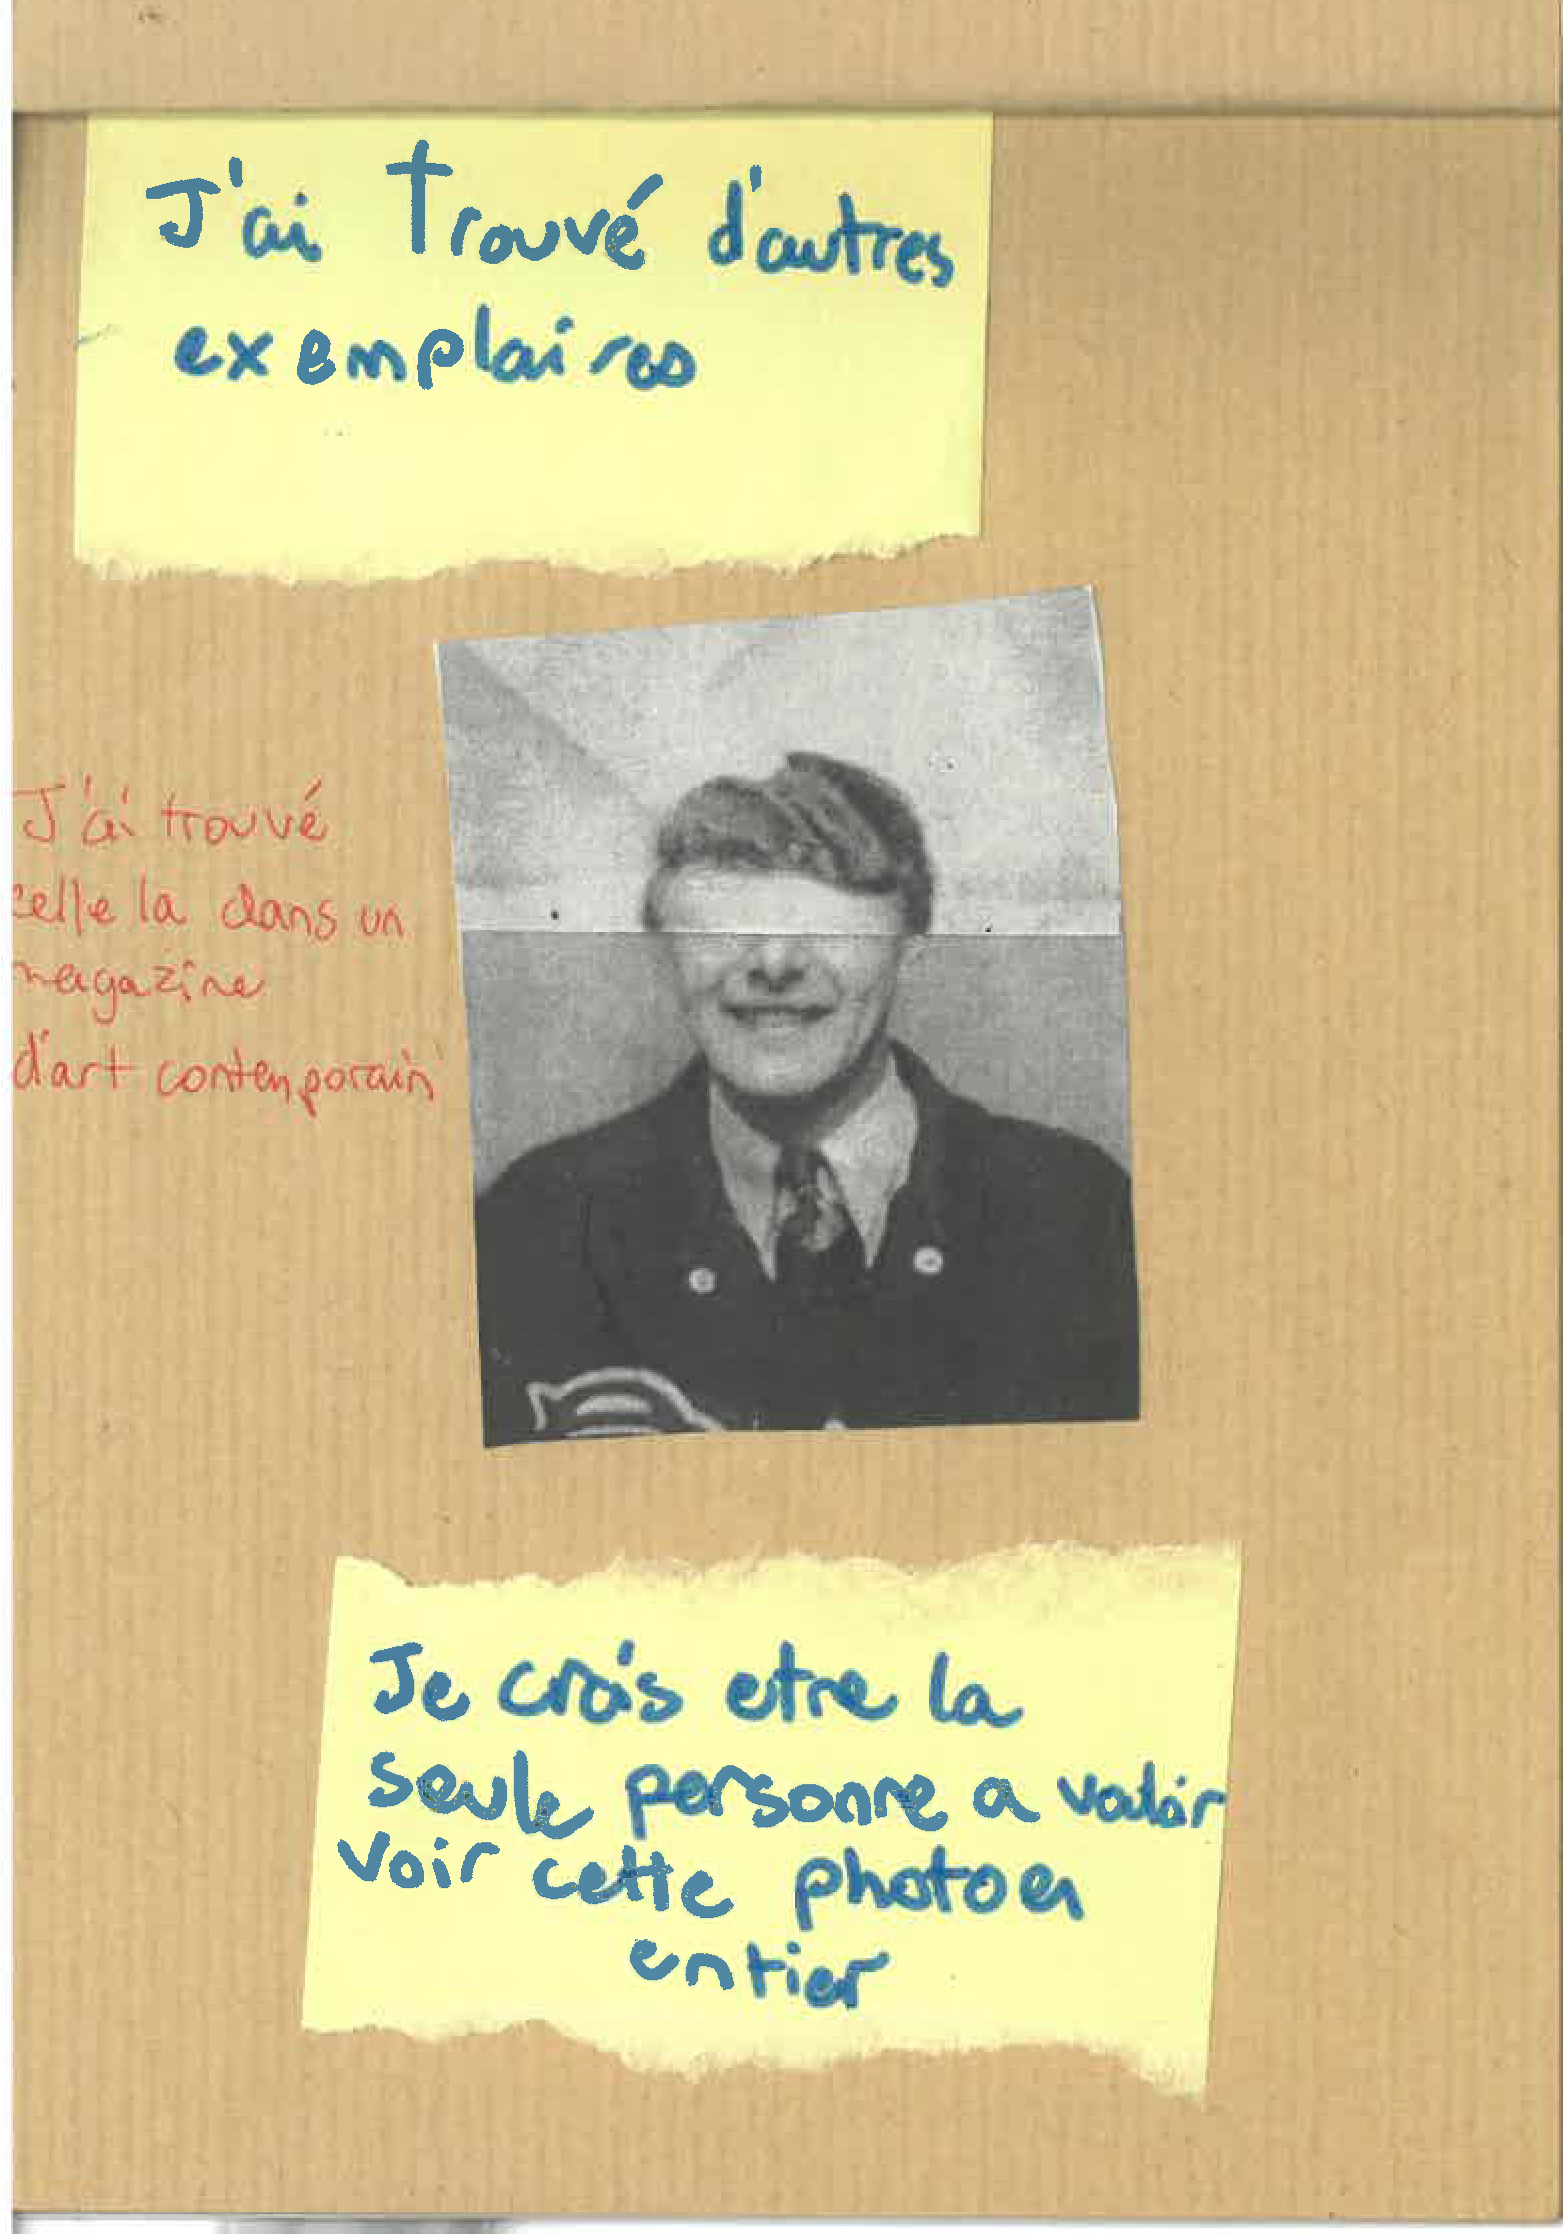 J'ai trouvé d'autres
exemplaires
J'ai trouvé
celle la dans un
magazine
d'art contemporain
Je crois etre la
seule personne a valoir
voir cette photo en
entier